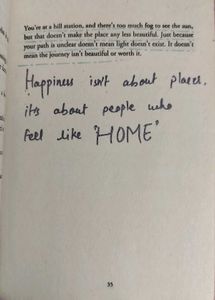 You're at a hill station, and there's too much fog to see the sun,
but that doesn't make the place any less beautiful. Just because
your path is unclear doesn't mean light doesn't exist. It doesn't
mean the journey isn't beautiful or worth it.
Happiness isn't about places,
it's about people who
feel like "HOME"
35